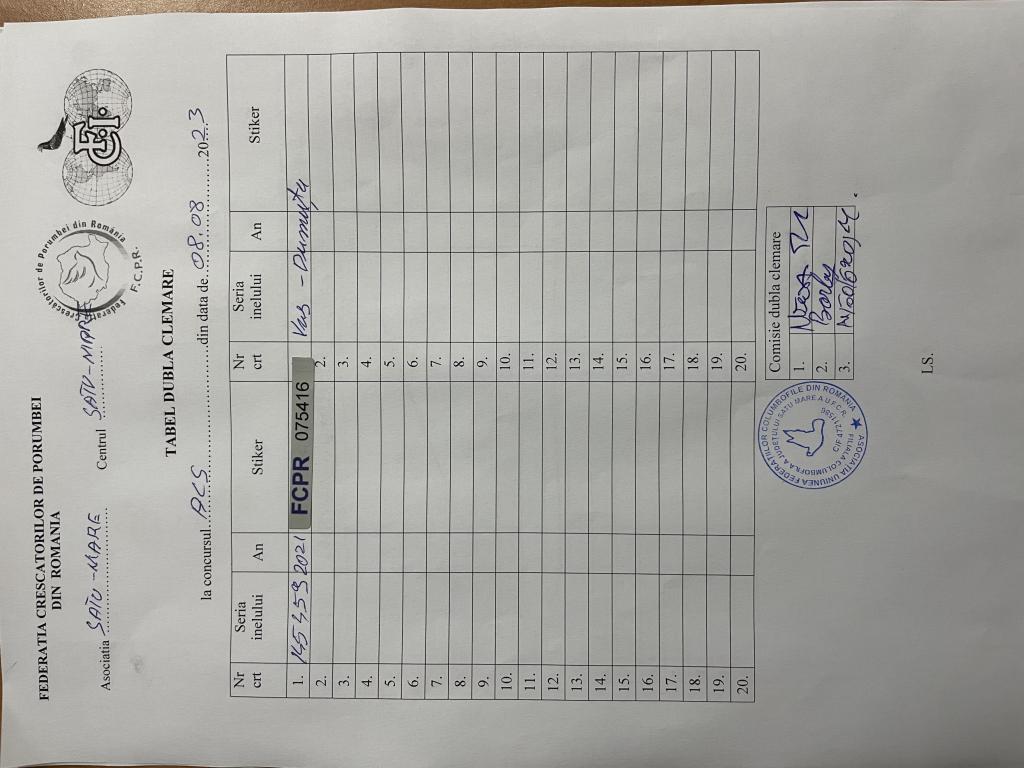 FEDERATIA CRESCATORILOR DE PORUMBEI
DIN ROMANIA
Federatia Crescatorilor de Porumbei din România
F.C.P.R.
FCI
Asociatia SATU-MARE Centrul SATU-MARE
TABEL DUBLA CLEMARE
la concursul ACS din data de 08.08 2023
Nr crt Seria inelului An Stiker Nr crt Seria inelului An Stiker
1. 145459 2021 FCPR 075416 Vas - Dumitru
2. 2.
3. 3.
4. 4.
5. 5.
6. 6.
7. 7.
8. 8.
9. 9.
10. 10.
11. 11.
12. 12.
13. 13.
14. 14.
15. 15.
16. 16.
17. 17.
18. 18.
19. 19.
20. 20.
ASOCIATIA UNIUNEA FEDERATIILOR COLUMBOFILE DIN ROMANIA
FILIALA COLUMBOFILA A JUDETULUI SATU MARE A U.F.C.R.
Comisie dubla clemare
1.
2.
3.
I.S.